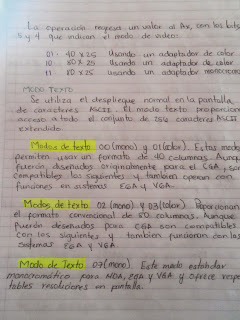 La operación regresa un valor al Ax, con los bits
5 y 4 que indican el modo de video:
01 - 40 x 25 Usando un adaptador de color
10 80 x 25 Usando un adaptador de color
11 80 x 25 Usando un adaptador monocroma
MODO TEXTO
Se utiliza el despliegue normal en la pantalla
de caracteres ASCII. El modo texto proporciona
acceso a todo el conjunto de 256 caracteres ASCII
extendido.
Modos de texto 00 (mono) y 01 (color). Estos modos
permiten usar un formato de 40 columnas. Aunque
fuerón diseñados originalmente para el CGA, son
compatibles los siguientes y tambien operan con
funciones en sistemas EGA y VGA.
Modos de texto 02 (mono) y 03 (color). Proporcionan
el formato convencional de 80 columnas. Aunque
fuerón deseñados para CGA son compatibles
con los siguientes y tambien funcionan con los
Sistemas EGA y VGA.
Modo de Texto 07 (mono). Este modo estabdar
monocromático para MDA, EGA y VGA y ofrece respe
tables resoluciones en pantalla.